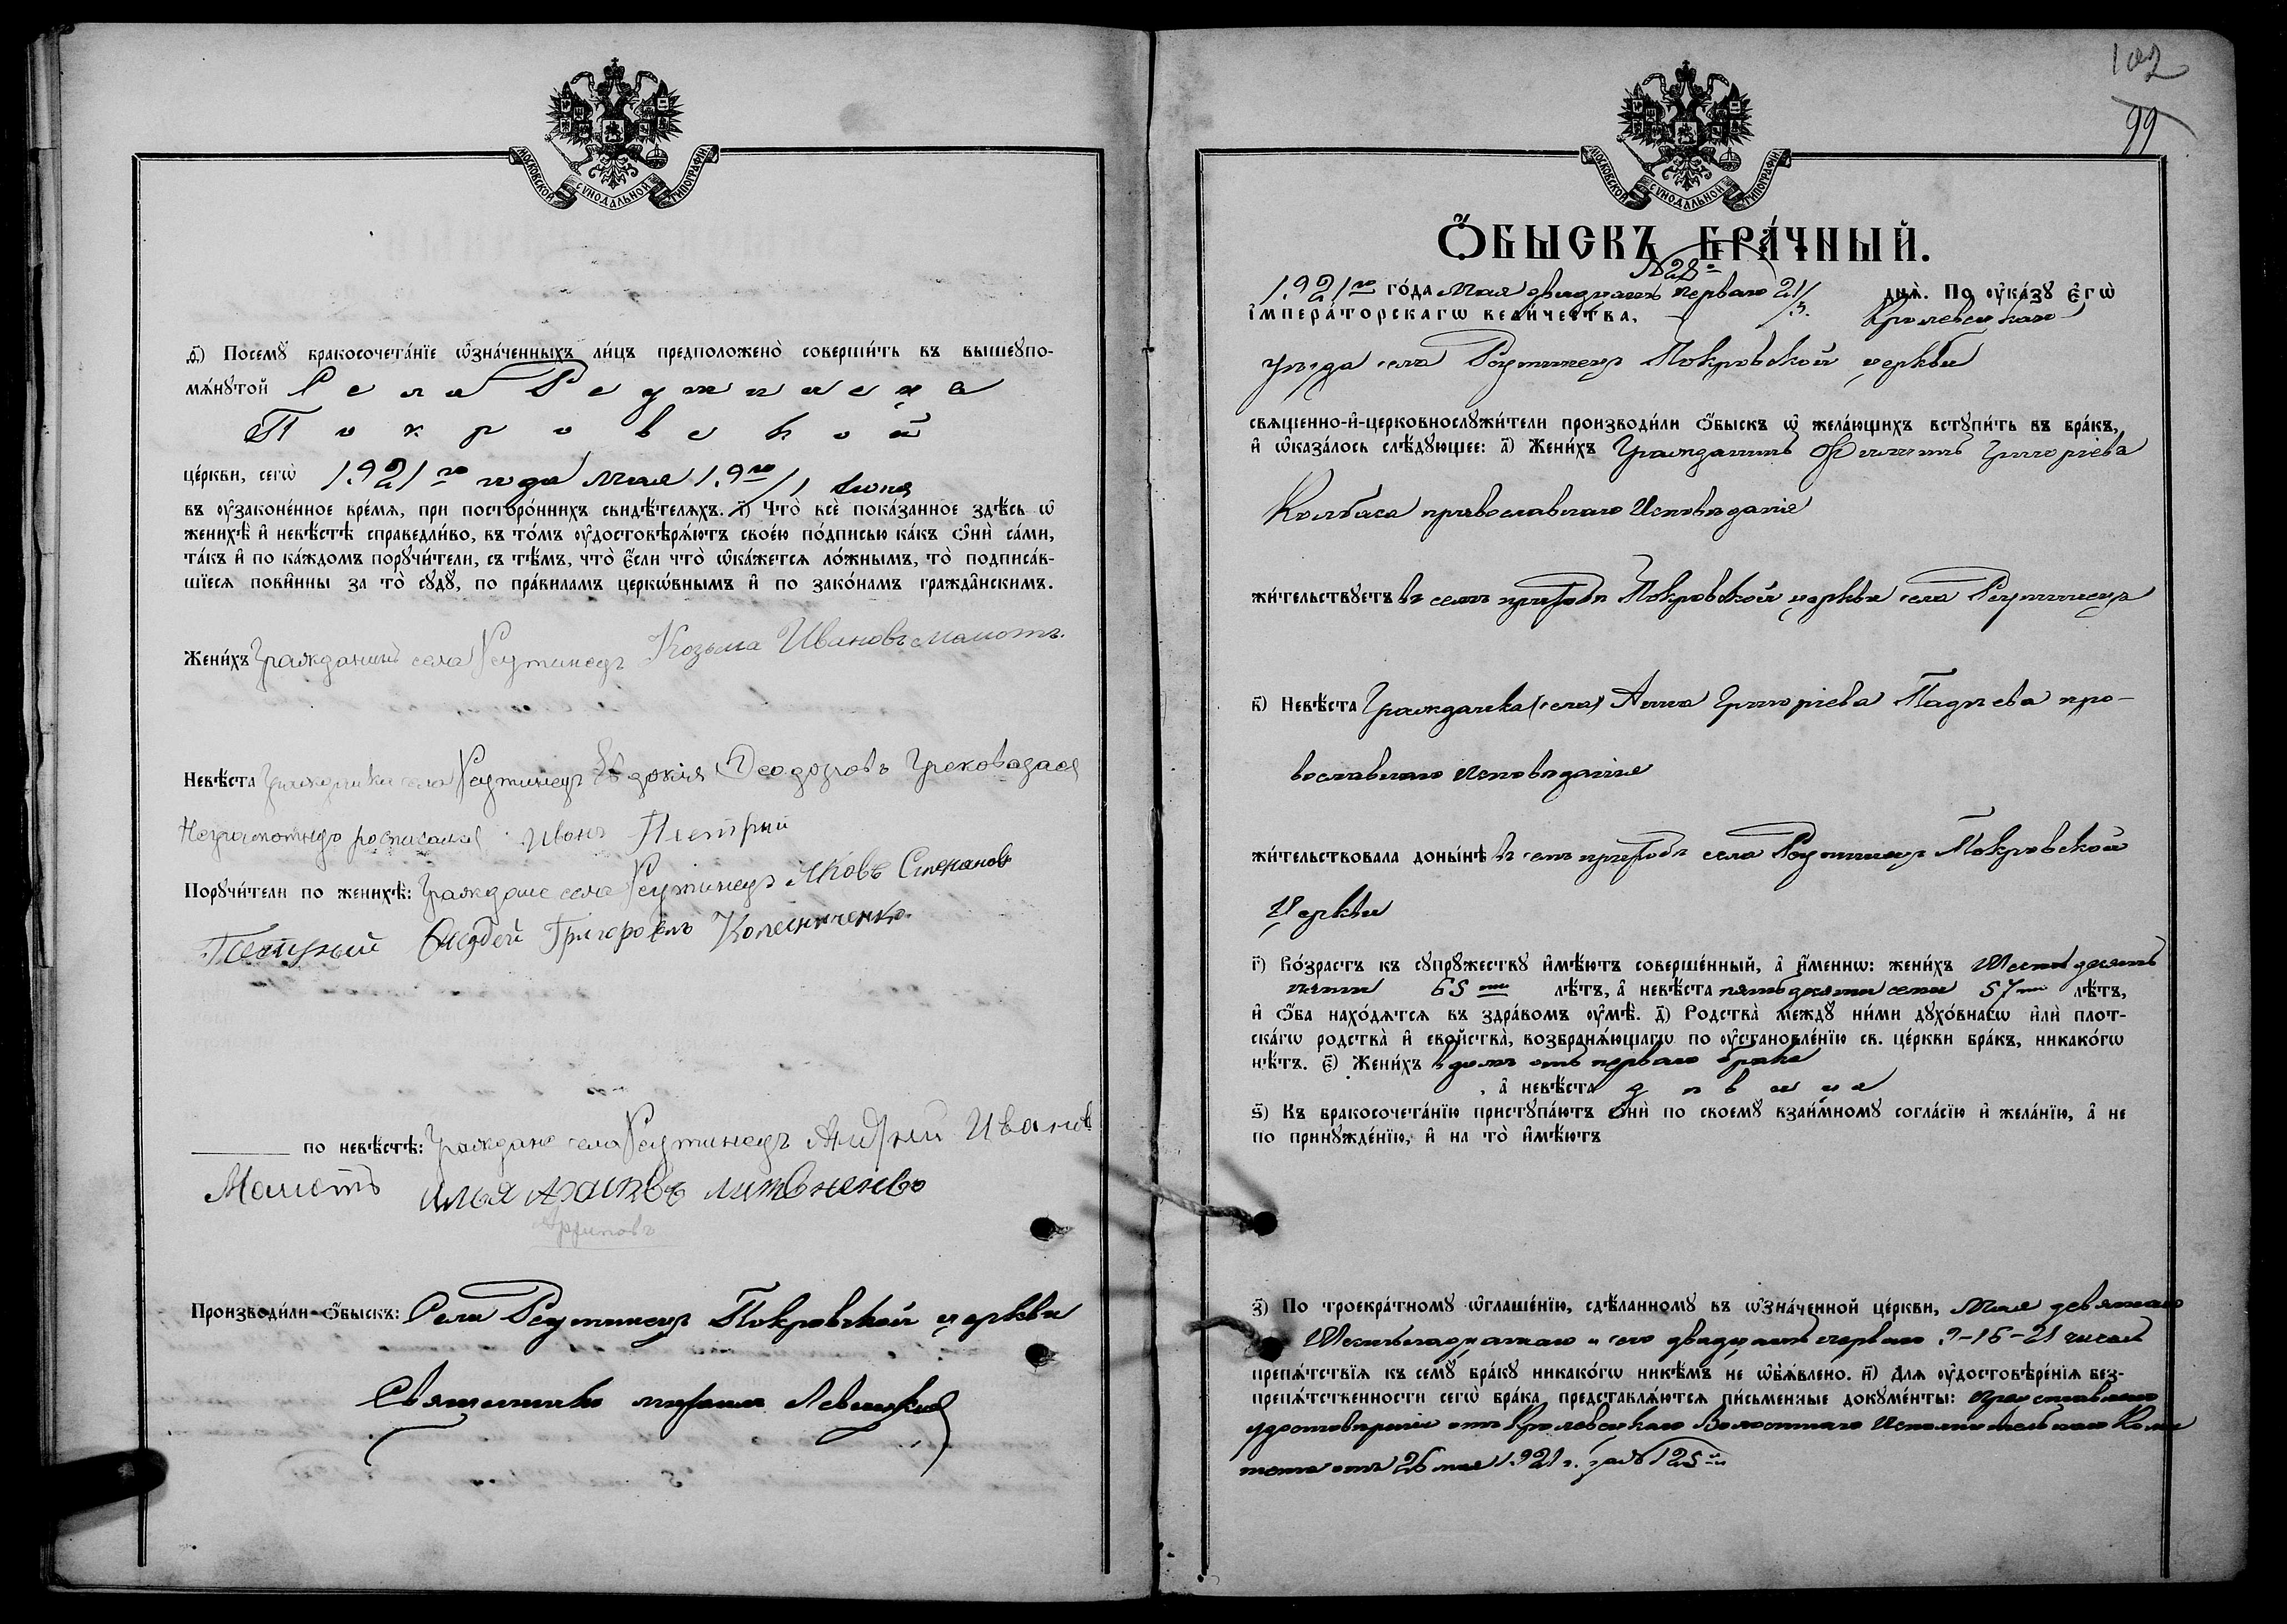 МОСКОВСКОЙ СѴНОДАЛЬНОЙ ТИПОГРАФІИ
ѳ҃) Посемꙋ̀ бракосочета́нїе ѡ҆зна́ченныхъ ли́цъ предположено̀ соверши́ть въ вышеꙋпо-
мѧ́нꙋтой Села Реутинецъ
Покровской
це́ркви, сегѡ̀ 1921го года Мая 19го/1 Июня
въ ᲂу҆законе́нное вре́мѧ, при посторо́ннихъ свидѣ́телѧхъ. і҃) Что̀ всѐ пока́занное здѣ́сь ѡ҆
женихѣ̀ и҆ невѣ́стѣ справедли́во, въ то́мъ ᲂу҆достовѣрѧ́ютъ свое́ю по́дписью ка́къ ѻ҆нѝ са́ми,
та́къ и҆ по ка́ждомъ порꙋчи́тели, съ тѣ́мъ, что̀ є҆́сли что̀ ѡ҆ка́жетсѧ ло́жнымъ, то̀ подписа́в-
шїесѧ пови́нны за то̀ сꙋдꙋ̀, по пра́виламъ церкѡ́внымъ и҆ по зако́намъ гражда̑нскимъ.
Жени́хъ Гражданинъ села Реутинецъ Козьма Ивановъ Мамотъ.
Невѣ́ста Гражданка села Реутинецъ Евдокія Феодорова
Неграмотную росписался Иванъ
Порꙋчи́тели по женихѣ̀: Граждане села Реутинецъ Яковъ Степановъ
Андрей Григоровъ Колесниченко.
по невѣ́стѣ: Граждане села Реутинецъ Андрей Иванов
Мамотъ Илья
Производи́ли ѻ҆́быскъ: Села Реутинецъ Покровской церкви
Священникъ Михаилъ Левицкий
102
99
МОСКОВСКОЙ СѴНОДАЛЬНОЙ ТИПОГРАФІИ
Ѻ҆́БЫСКЪ БРА́ЧНЫЙ.
№28й
1921го го́да Мая двадцать перваго 21/5. днѧ̀. По ᲂу҆ка́зꙋ є҆гѡ̀
і҆мпера́торскагѡ вели́чества, Кролевецкаго
уѣзда села Реутинецъ Покровской церкви
свѧщенно-и҆-церковнослꙋжи́тели производи́ли ѻ҆́быскъ ѡ҆ жела́ющихъ встꙋпи́ть въ бра́къ,
и҆ ѡ҆каза́лось слѣ́дꙋющее: а҃) Жени́хъ Гражданинъ Филиппъ Григоріевъ
Колбаса православнаго Исповѣданія
жи́тельствꙋетъ въ семъ приходѣ Покровской церкви села Реутинецъ
в҃) Невѣ́ста Гражданка (села) Анна Григоріева пра-
вославнаго исповѣданія
жи́тельствовала доны́нѣ въ семъ приходѣ села Реутинецъ Покровской
Церкви
г҃) Во́зрастъ къ сꙋпрꙋ́жествꙋ и҆мѣ́ютъ соверше́нный, а҆ и҆́меннѡ: жени́хъ Шестьдесятъ
пяти 65ти лѣ́тъ, а҆ невѣ́ста пятьдесяти семи 57ми лѣ́тъ,
и҆ ѻ҆́ба нахо́дѧтсѧ въ здра́вомъ ᲂу҆мѣ̀. д҃) Родства̀ междꙋ̀ ни́ми дꙋхо́внагѡ и҆лѝ плот-
ска́гѡ родства̀ и҆ сво́йства̀, возбранѧ́ющагѡ по ᲂу҆становле́нїю св. це́ркви бра́къ, никако́гѡ
нѣ́тъ. є҃) Жени́хъ вдовъ отъ перваго брака
, а҆ невѣ́ста дѣвица
ѕ҃) Къ бракосочета́нїю пристꙋпа́ютъ ѻ҆нѝ по своемꙋ̀ взаи́мномꙋ согла́сїю и҆ жела́нїю, а҆ не
по принꙋжде́нїю, и҆ на то̀ и҆мѣ́ютъ
з҃) По троекра́тномꙋ ѡ҆глаше́нїю, сдѣ́ланномꙋ въ ѡ҆зна́ченной це́ркви, Мая девятаго
Шестьнадцатаго и сего двадцать перваго 9-16-21 чиселъ
препѧ́тствїѧ къ семꙋ̀ бра́кꙋ никако́гѡ никѣ́мъ не ѡ҆б̾ѧ́влено. и҃) Длѧ ᲂу҆достовѣре́нїѧ без-
препѧ́тственности сегѡ̀ бра́ка, представлѧ́ютсѧ пи́сьменные докꙋме́нты: представлено
удостовѣреніе отъ Кролевецкаго Волостнаго Исполнительнаго Коми
тета отъ 26 мая 1921 г. за № 125й